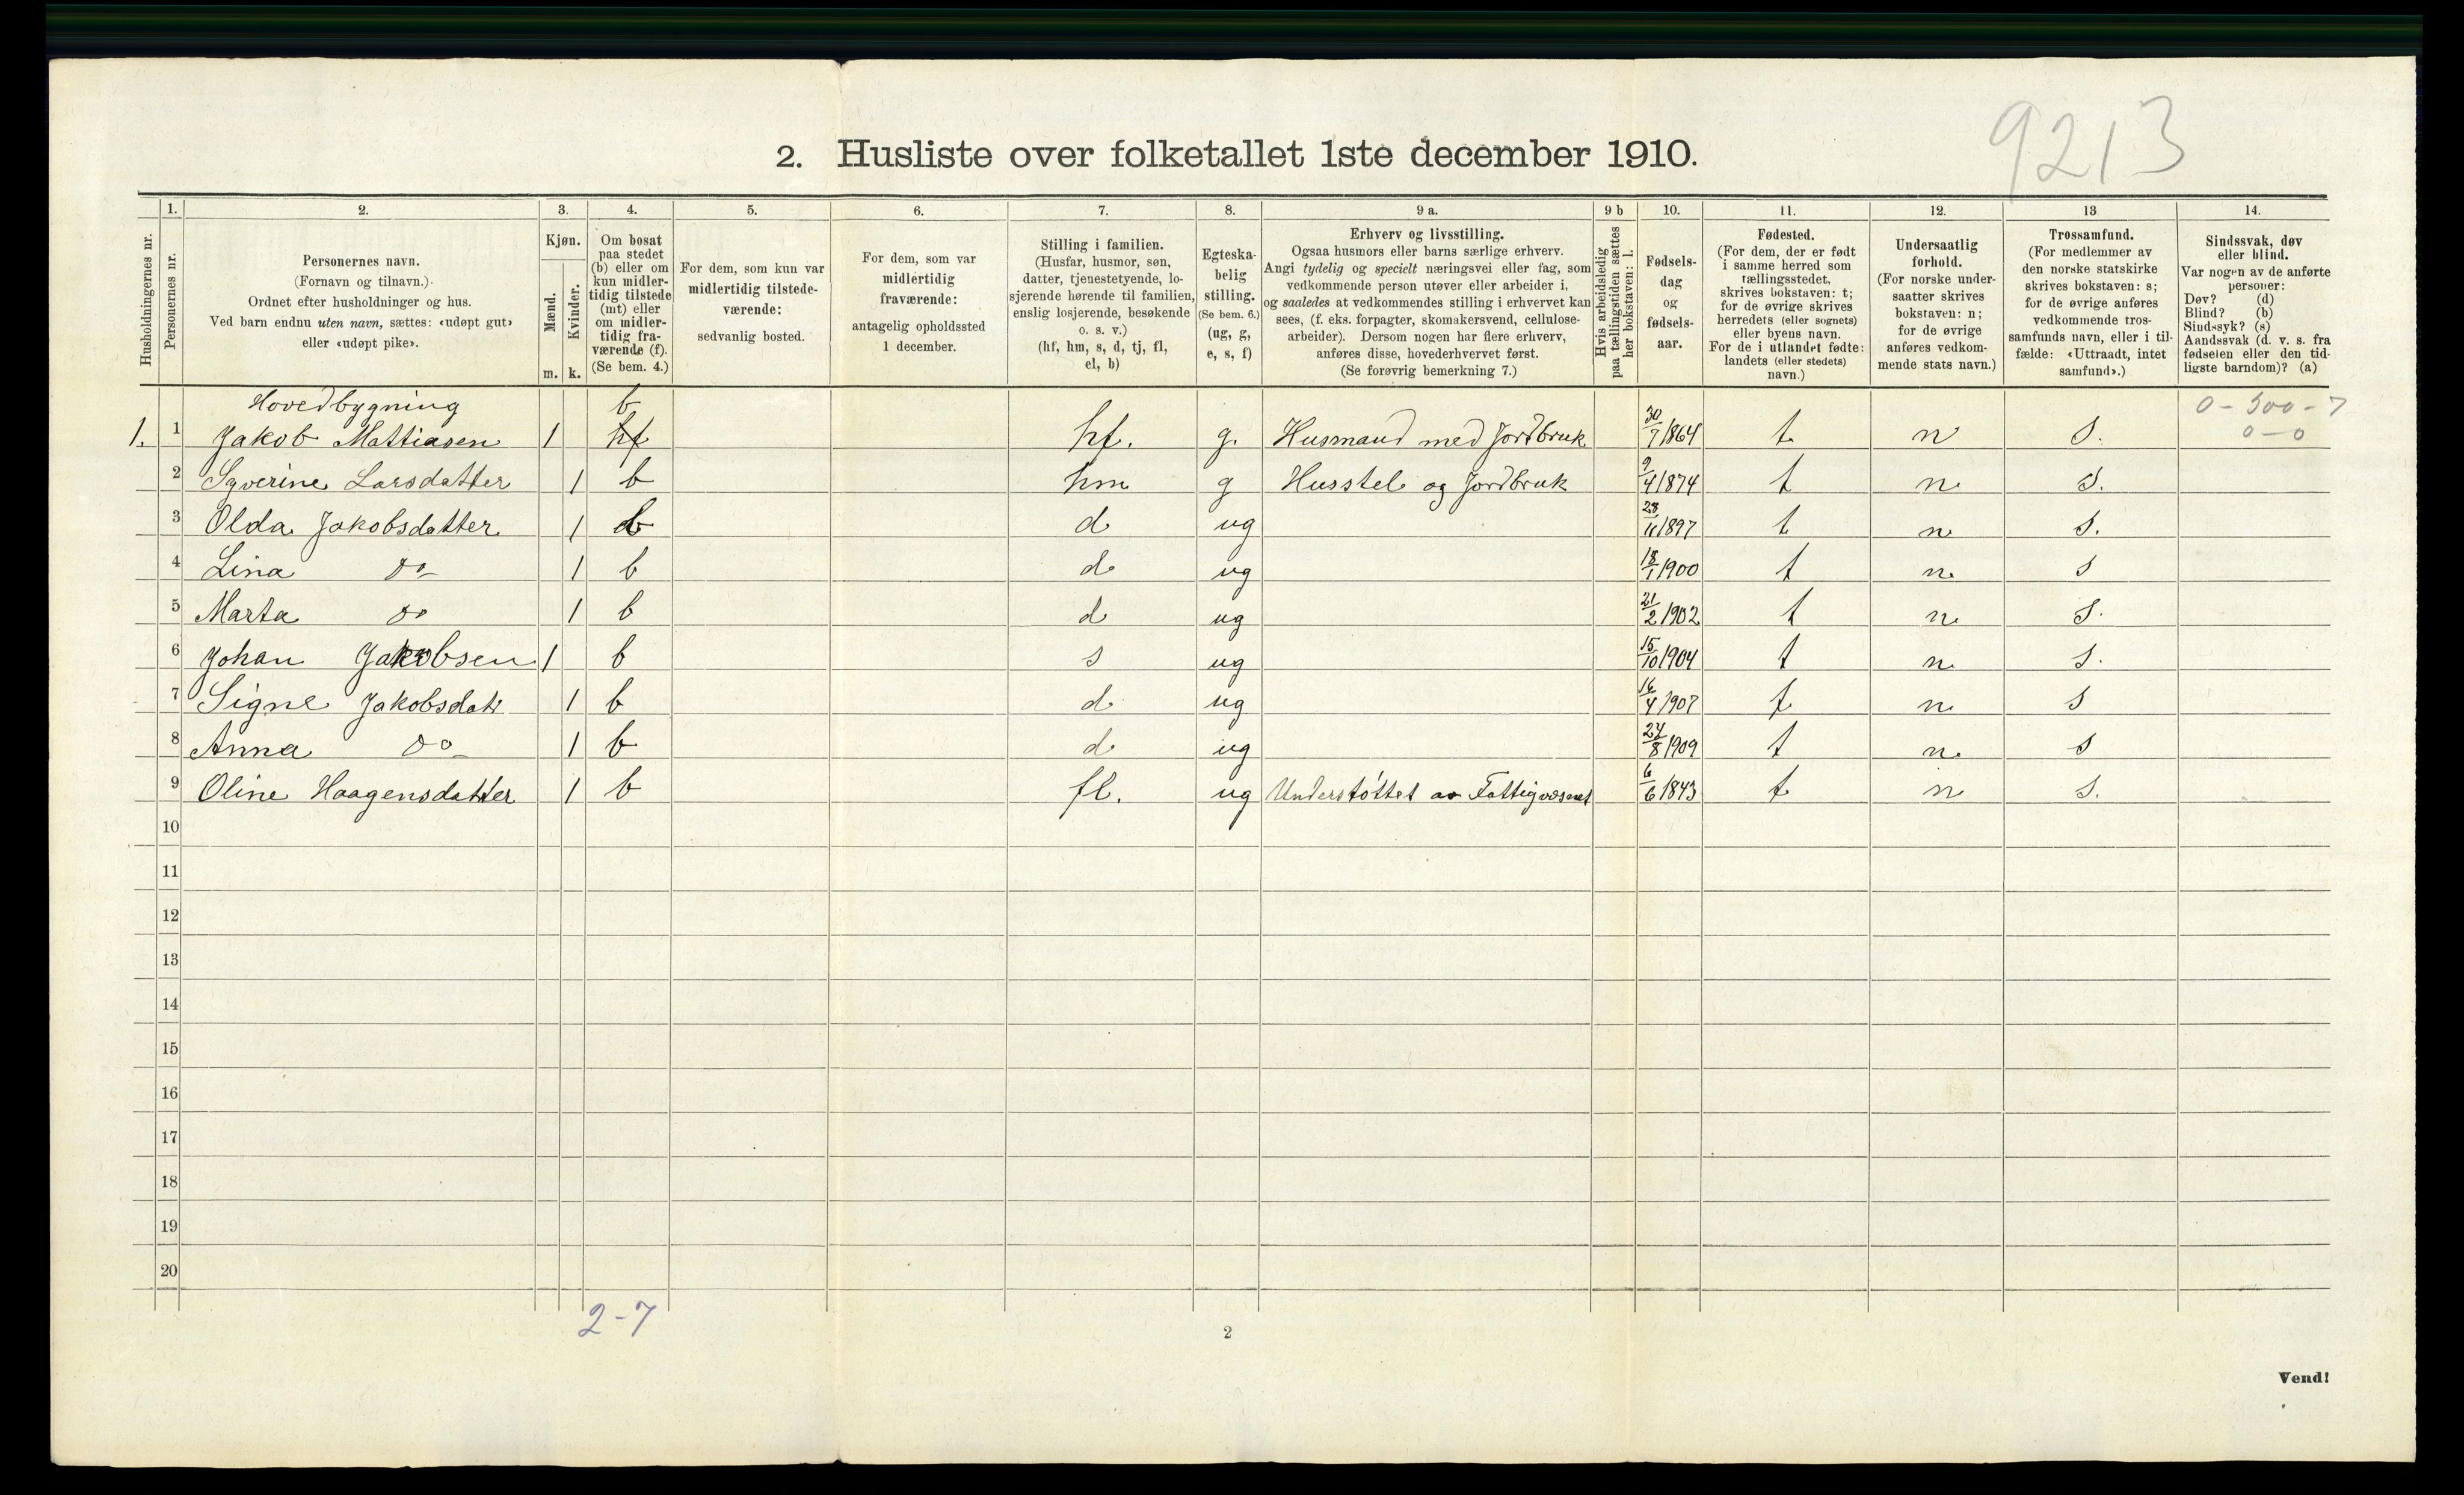 9213
2. Husliste over folketallet 1ste december 1910.
Husholdningernes nr.
1. Personernes nr.
2. Personernes navn. (Fornavn og tilnavn.) Ordnet efter husholdninger og hus. Ved barn endnu uten navn, sættes: «udøpt gut» eller «udøpt pike».
3. Kjøn. Mænd. m. Kvinder. k.
4. Om bosat paa stedet (b) eller om kun midlertidig tilstede (mt) eller om midlertidig fraværende (f). (Se bem. 4.)
5. For dem, som kun var midlertidig tilstedeværende: sedvanlig bosted.
6. For dem, som var midlertidig fraværende: antagelig opholdssted 1 december.
7. Stilling i familien. (Husfar, husmor, søn, datter, tjenestetyende, losjerende hørende til familien, enslig losjerende, besøkende o. s. v.) (hf, hm, s, d, tj, fl, el, b)
8. Egteskabelig stilling. (Se bem. 6.) (ug, g, e, s, f)
9 a. Erhverv og livsstilling. Ogsaa husmors eller barns særlige erhverv. Angi tydelig og specielt næringsvei eller fag, som vedkommende person utøver eller arbeider i, og saaledes at vedkommendes stilling i erhvervet kan sees, (f. eks. forpagter, skomakersvend, cellulosearbeider). Dersom nogen har flere erhverv, anføres disse, hovederhvervet først. (Se forøvrig bemerkning 7.)
9 b Hvis arbeidsledig paa tællingstiden sættes her bokstaven: l.
10. Fødselsdag og fødselsaar.
11. Fødested. (For dem, der er født i samme herred som tællingsstedet, skrives bokstaven: t; for de øvrige skrives herredets (eller sognets) eller byens navn. For de i utlandet fødte: landets (eller stedets) navn.)
12. Undersaatlig forhold. (For norske undersaatter skrives bokstaven: n; for de øvrige anføres vedkommende stats navn.)
13 Trossamfund. (For medlemmer av den norske statskirke skrives bokstaven: s; for de øvrige anføres vedkommende trossamfunds navn, eller i tilfælde: «Uttraadt, intet samfund».)
14. Sindssvak, døv eller blind. Var nogen av de anførte personer: Døv? (d) Blind? (b) Sindssyk? (s) Aandssvak (d. v. s. fra fødselen eller den tidligste barndom)? (a)
Hovedbygning b 0-300-7
1. 1 Jakob Mattiasen 1 hf hf. g. Husmand med Jordbruk 30/7 1864 t n s. 0-0
2 Syverine Larsdatter 1 b hm g Husstel og Jordbruk 9/4 1874 t n s.
3 Olda Jakobsdatter 1 b d ug 28/11 1897 t n s.
4 Lina do 1 b d ug 18/1 1900 t n s
5 Marta do 1 b d ug 21/2 1902 t n s.
6 Johan Jakobsen 1 b s ug 15/10 1904 t n s.
7 Signe Jakobsdatr 1 b d ug 16/4 1907 t n s
8 Anna do 1 b d ug 27/8 1909 t n s
9 Oline Haagensdatter 1 b fl. ug Understøttet av Fattigvæsnet 6/6 1843 t n s.
10
11
12
13
14
15
16
17
18
19
20
2-7
2
Vend!